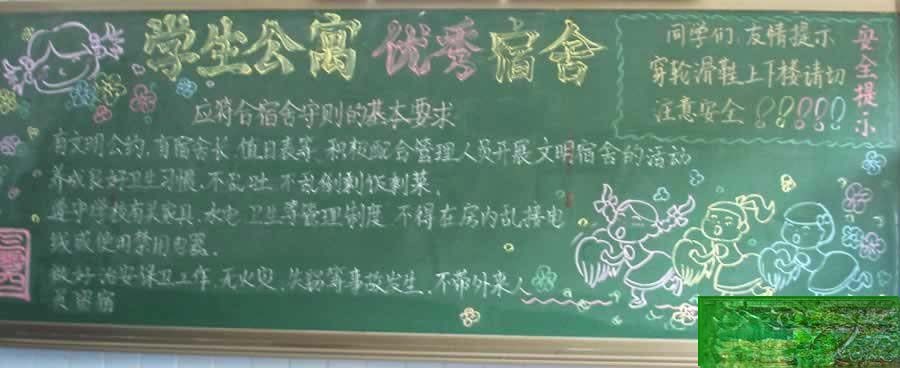 学生公寓优秀宿舍
应符合宿舍守则的基本要求
有文明公约,有宿舍长,值日表等,积极配合管理人员开展文明宿舍的活动
养成良好卫生习惯,不乱吐,不乱倒剩饭剩菜。
遵守学校有关家具,水电,卫生等管理制度,不得在房内乱接电
线或使用禁用电器.
做好治安保卫工作,无火灾,失窃等事故发生,不带外来人
员留宿
同学们,友情提示
穿轮滑鞋上下楼请切
注意安全 !!!!!
安全提示